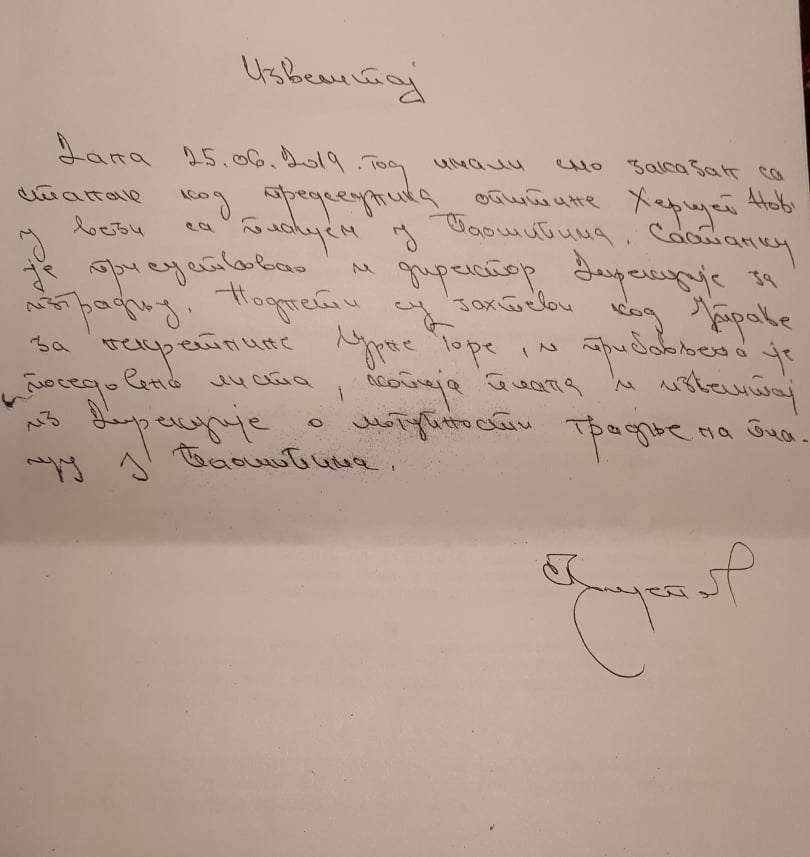 Извештај
Дана 25.06.2019. год имали смо заказан са
станак код председника општине Херцег Нови
у вези са плацем у Баошићима. Састанку
је присуствовао и директор Дирекције за
изградњу. Поднети су захтеви код Управе
за некретнине Црне Горе, и прибављено је
поседовно листа, копија плана и извештај
из Дирекције о могућности градње на пла-
цу у Баошићима.